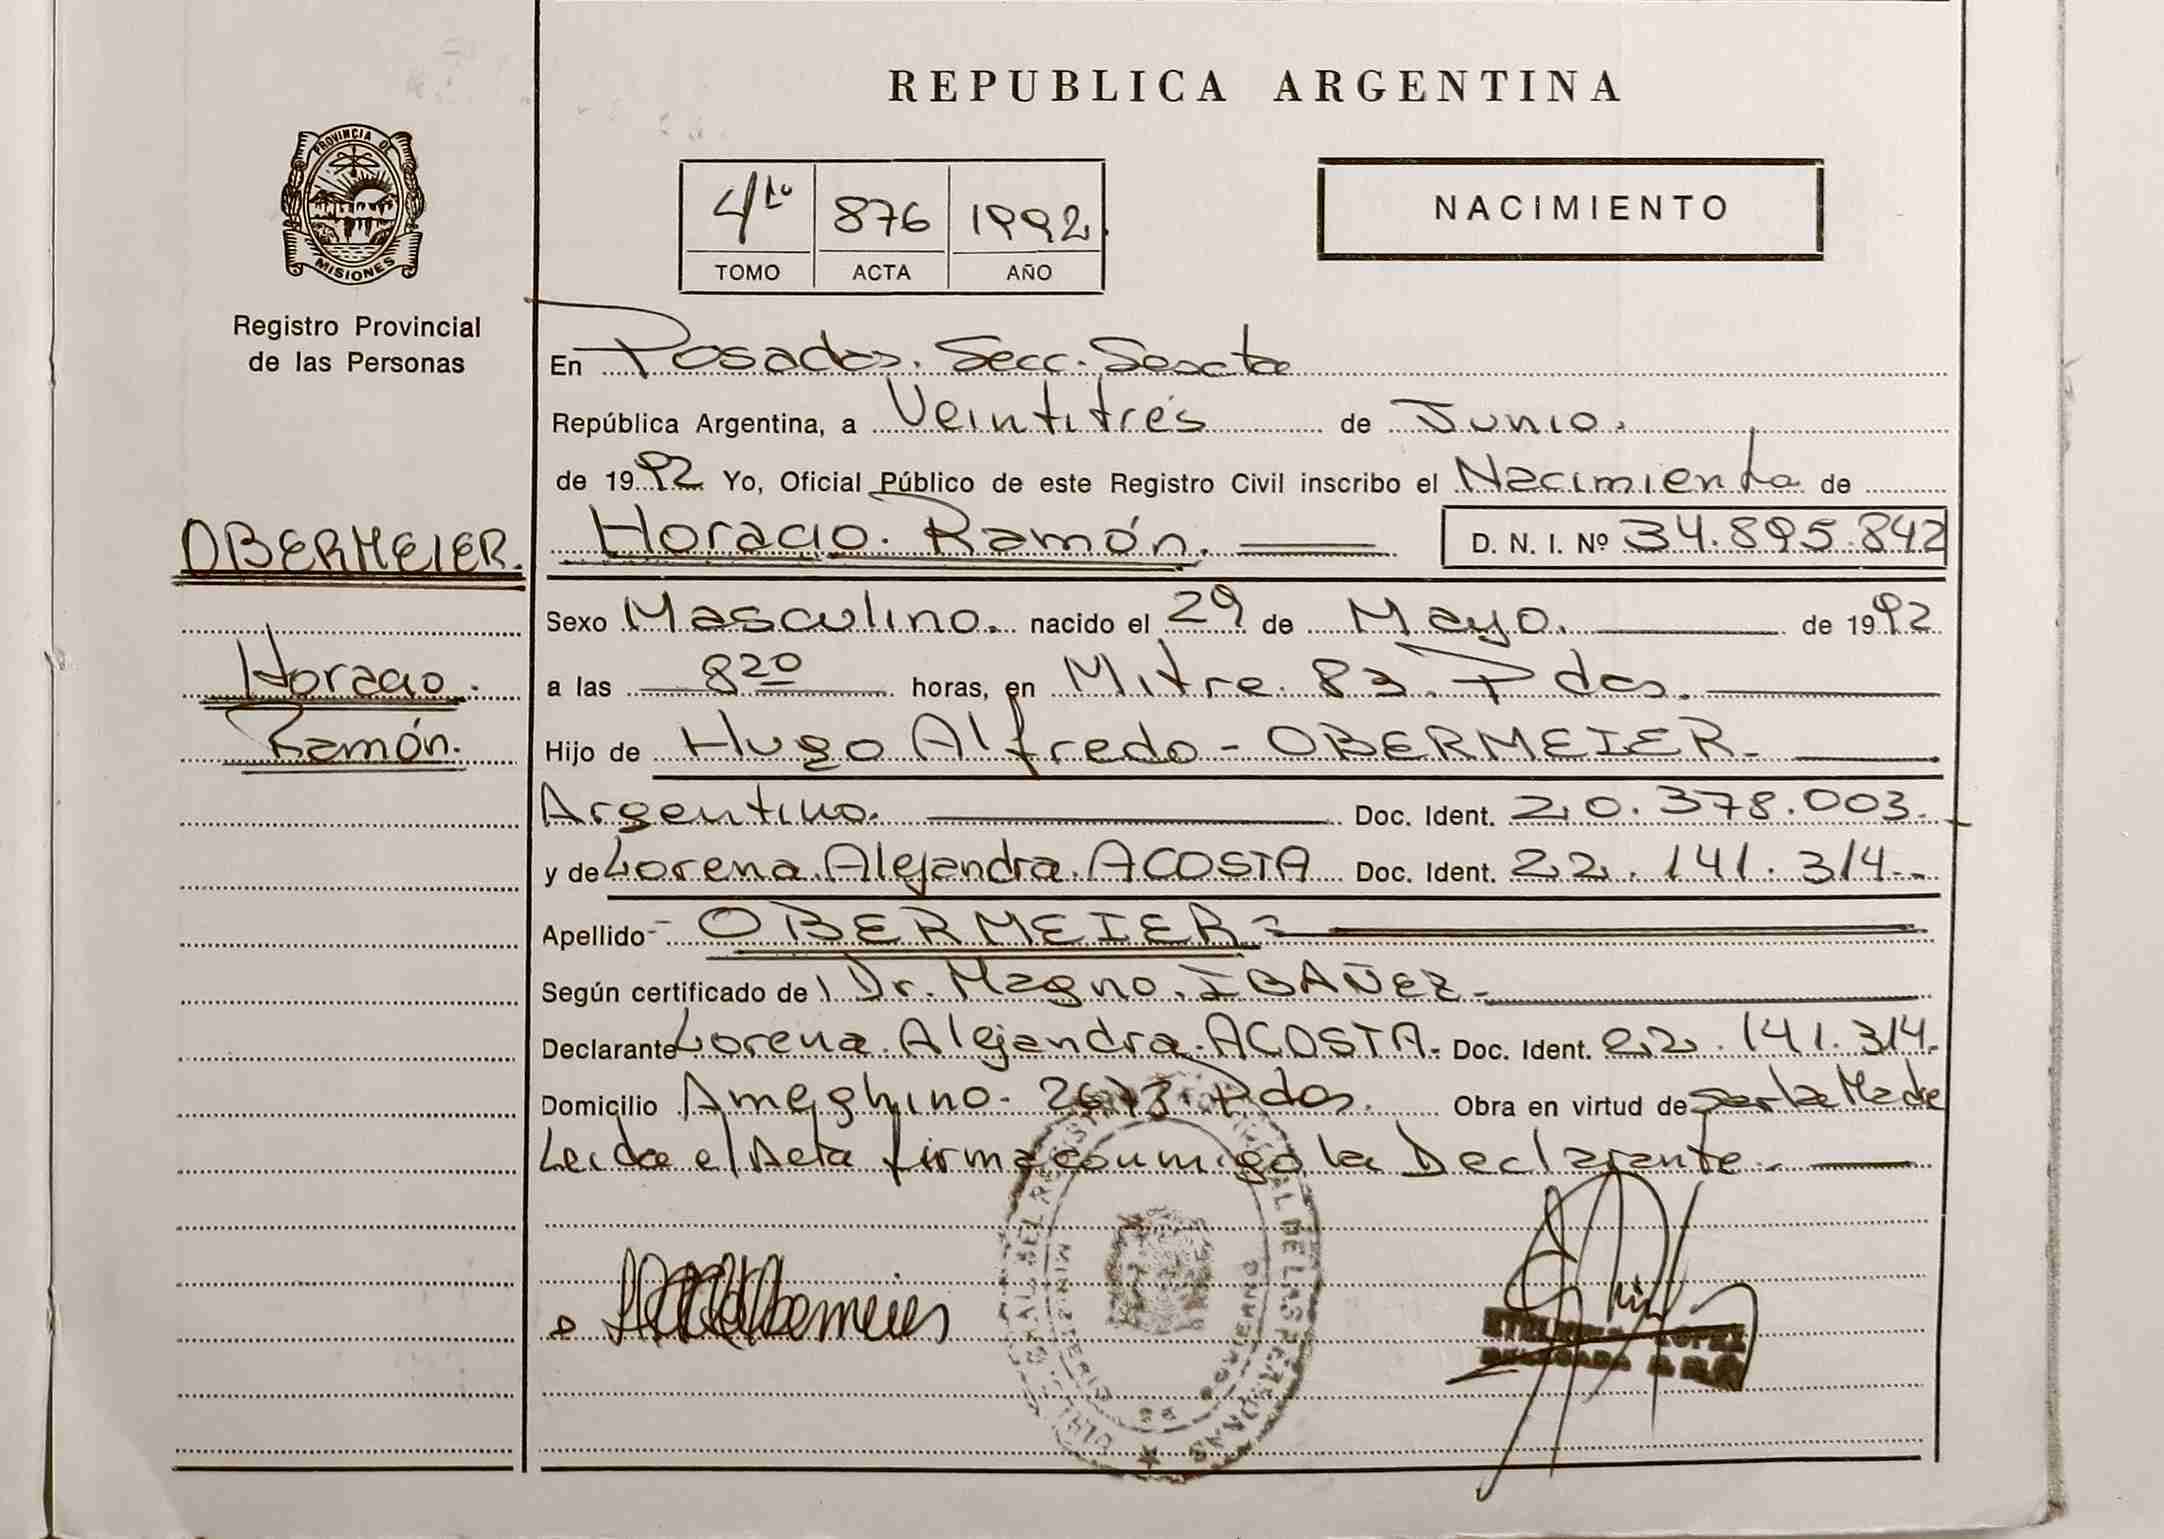 REPUBLICA ARGENTINA
PROVINCIA DE
MISIONES
Registro Provincial
de las Personas
4to 876 1992
TOMO ACTA AÑO
NACIMIENTO
En Posadas. Secc. Sexta
República Argentina, a Veintitrés de Junio.
de 1992 Yo, Oficial Público de este Registro Civil inscribo el Nacimiento de
OBERMEIER.
Horacio. Ramón. D. N. I. Nº 34.895.842
Sexo Masculino. nacido el 29 de Mayo. de 1992
Horacio.
a las 8 20 horas, en Mitre. 83. Pdas.
Ramón.
Hijo de Hugo Alfredo - OBERMEIER-
Argentino. Doc. Ident. 20.378.003.
y de Lorena. Alejandra. ACOSTA Doc. Ident. 22.141.314.-
Apellido- OBERMEIER=
Según certificado de Dr. Magno. IBAÑEZ-
Declarante Lorena. Alejandra. ACOSTA. Doc. Ident. 22.141.314.
Domicilio Ameghino. 2673. Pdas. Obra en virtud de ser la Madre
Leida el Acta firma conmigo la Declarante.
DEL DE LAS PERSONAS
MINISTERIO GOBIERNO
LOPEZ